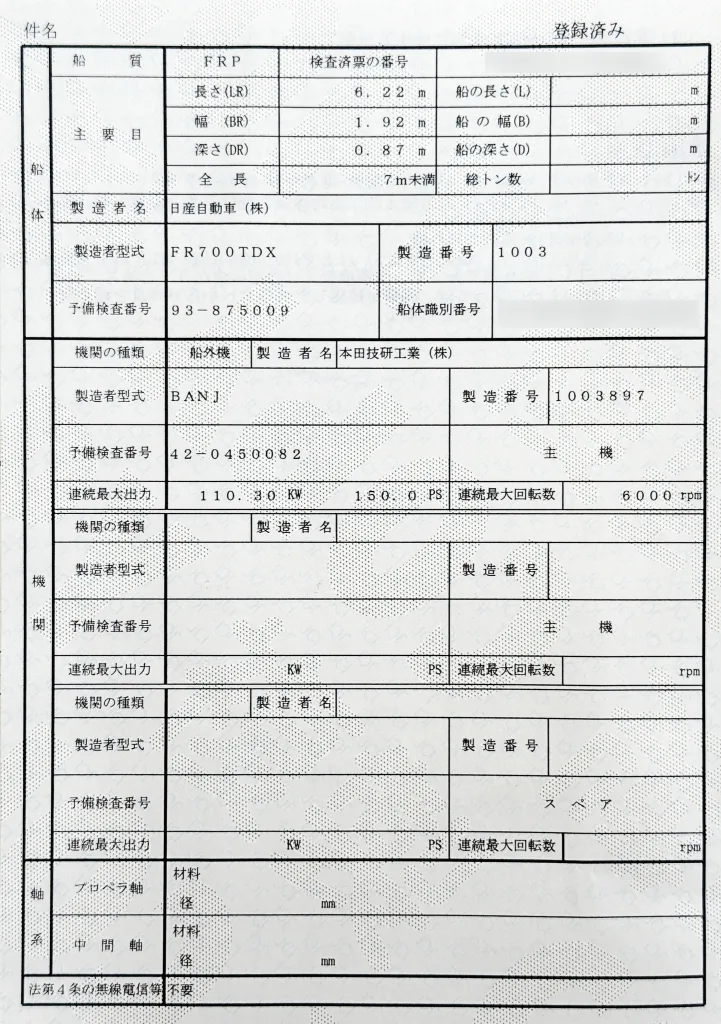 件名 登録済み
船質 FRP 検査済票の番号
主要目 長さ(LR) 6.22 m 船の長さ(L) m
幅(BR) 1.92 m 船の幅(B) m
深さ(DR) 0.87 m 船の深さ(D) m
全長 7m未満 総トン数 トン
船体
製造者名 日産自動車(株)
製造者型式 FR700TDX 製造番号 1003
予備検査番号 93-875009 船体識別番号
機関の種類 船外機 製造者名 本田技研工業(株)
製造者型式 BANJ 製造番号 1003897
予備検査番号 42-0450082 主機
連続最大出力 110.30 KW 150.0 PS 連続最大回転数 6000 rpm
機関の種類 製造者名
製造者型式 製造番号
機関
予備検査番号 主機
連続最大出力 KW PS 連続最大回転数 rpm
機関の種類 製造者名
製造者型式 製造番号
予備検査番号 スペア
連続最大出力 KW PS 連続最大回転数 rpm
軸系
プロペラ軸 材料
径 mm
中間軸 材料
径 mm
法第4条の無線電信等 不要